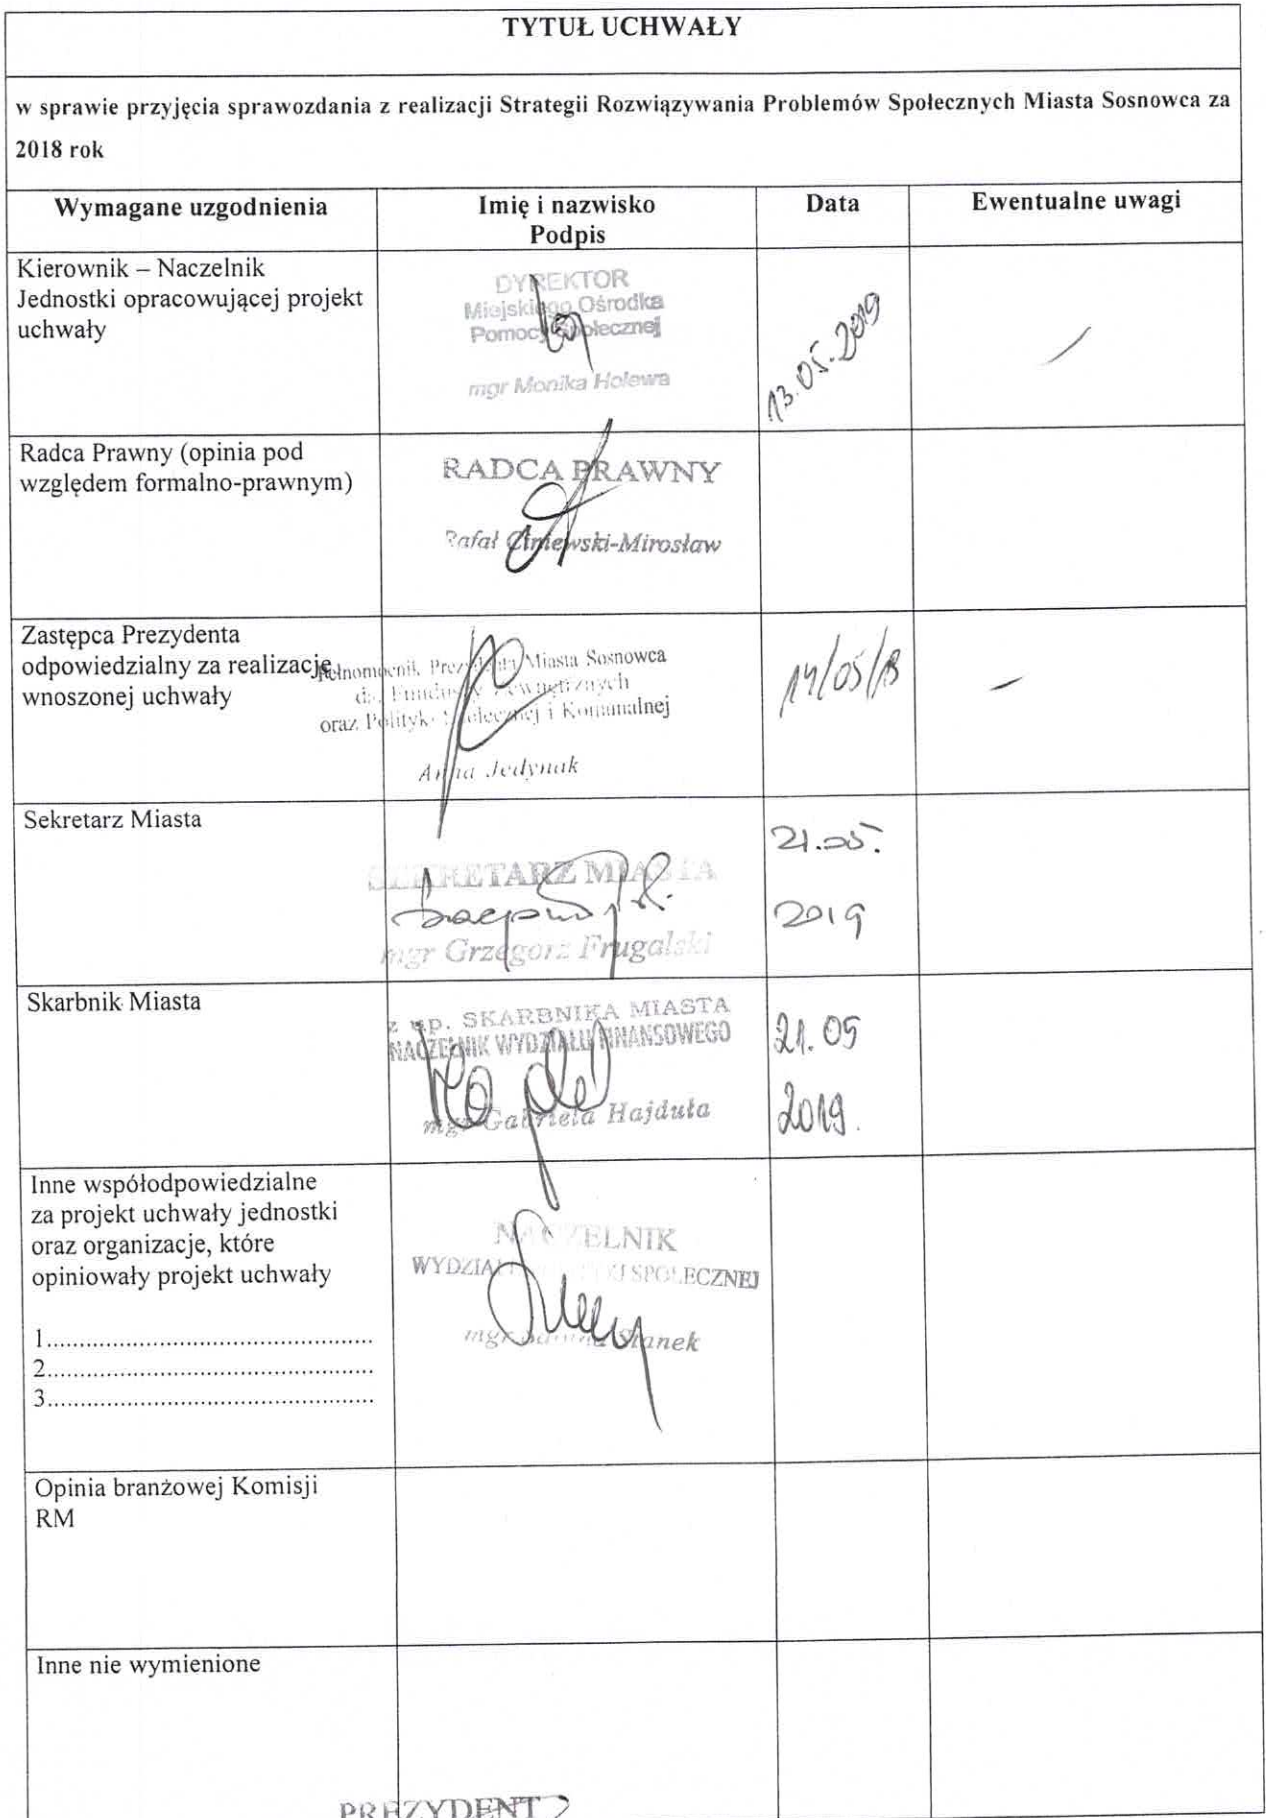 TYTUŁ UCHWAŁY
w sprawie przyjęcia sprawozdania z realizacji Strategii Rozwiązywania Problemów Społecznych Miasta Sosnowca za
2018 rok
Wymagane uzgodnienia
Imię i nazwisko
Podpis
Data
Ewentualne uwagi
Kierownik – Naczelnik
Jednostki opracowującej projekt
uchwały
DYREKTOR
Miejskiego Ośrodka
Pomocy Społecznej
mgr Monika Holewa
13.05.2019
Radca Prawny (opinia pod
względem formalno-prawnym)
RADCA PRAWNY
Rafał -Mirosław
Zastępca Prezydenta
odpowiedzialny za realizację
wnoszonej uchwały
Pełnomocnik Prezydenta Miasta Sosnowca
ds. Funduszy Zewnętrznych
oraz Polityki Społecznej i Komunalnej
Anna Jedynak
Sekretarz Miasta
SEKRETARZ MIASTA
mgr Grzegorz Frugalski
21.05.
2019
Skarbnik Miasta
z up. SKARBNIKA MIASTA
NACZELNIK WYDZIAŁU FINANSOWEGO
mgr Gabriela Hajduła
21.05
2019.
Inne współodpowiedzialne
za projekt uchwały jednostki
oraz organizacje, które
opiniowały projekt uchwały
1..................................................
2..................................................
3..................................................
NACZELNIK
WYDZIAŁ SPOŁECZNEJ
mgr Stanek
Opinia branżowej Komisji
RM
Inne nie wymienione
PREZYDENT